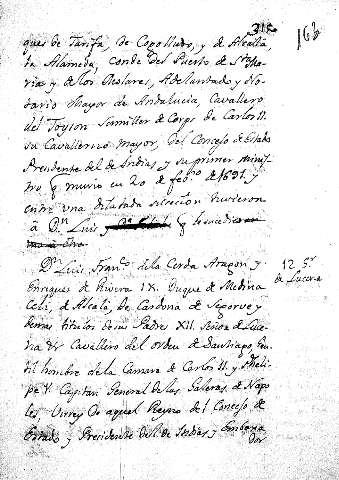 312
163
ques de Tarifa, de Cogolludo, y de Alcalà,
la Alameda, conde del Puerto de Sta Ma-
ria y de los Molares, Adelantado y No-
tario Mayor de Andalucia, Cavallero
del Toyson Samiller de Corps de Carlos II.
su Cavallerizo mayor, del Consejo de Estado
Presidente del de Indias, y su primer minis-
tro, q murio en 20 de febo de 1691. y
entre una dilatada sucesion tuvieron
à Dn Luis, q le sucedio
Dn Luis Franco de la Cerda Aragon y
Enriques de Rivera IX. Duque de Medina
Celi, de Alcalà, de Cardona de Segorve y
demas titulos de sus Padres XII. Señor de Luce-
na &c Cavallero del orden de Santiago, Gen-
til hombre de la Camara de Carlos II. y Pheli-
pe V. Capitan General de las Galeras de Napo-
les, Virrey de aquel Reyno del Consejo de
Estado y Presidente del de Indias, y Embaxa
dor
12 Sr
de Lucena